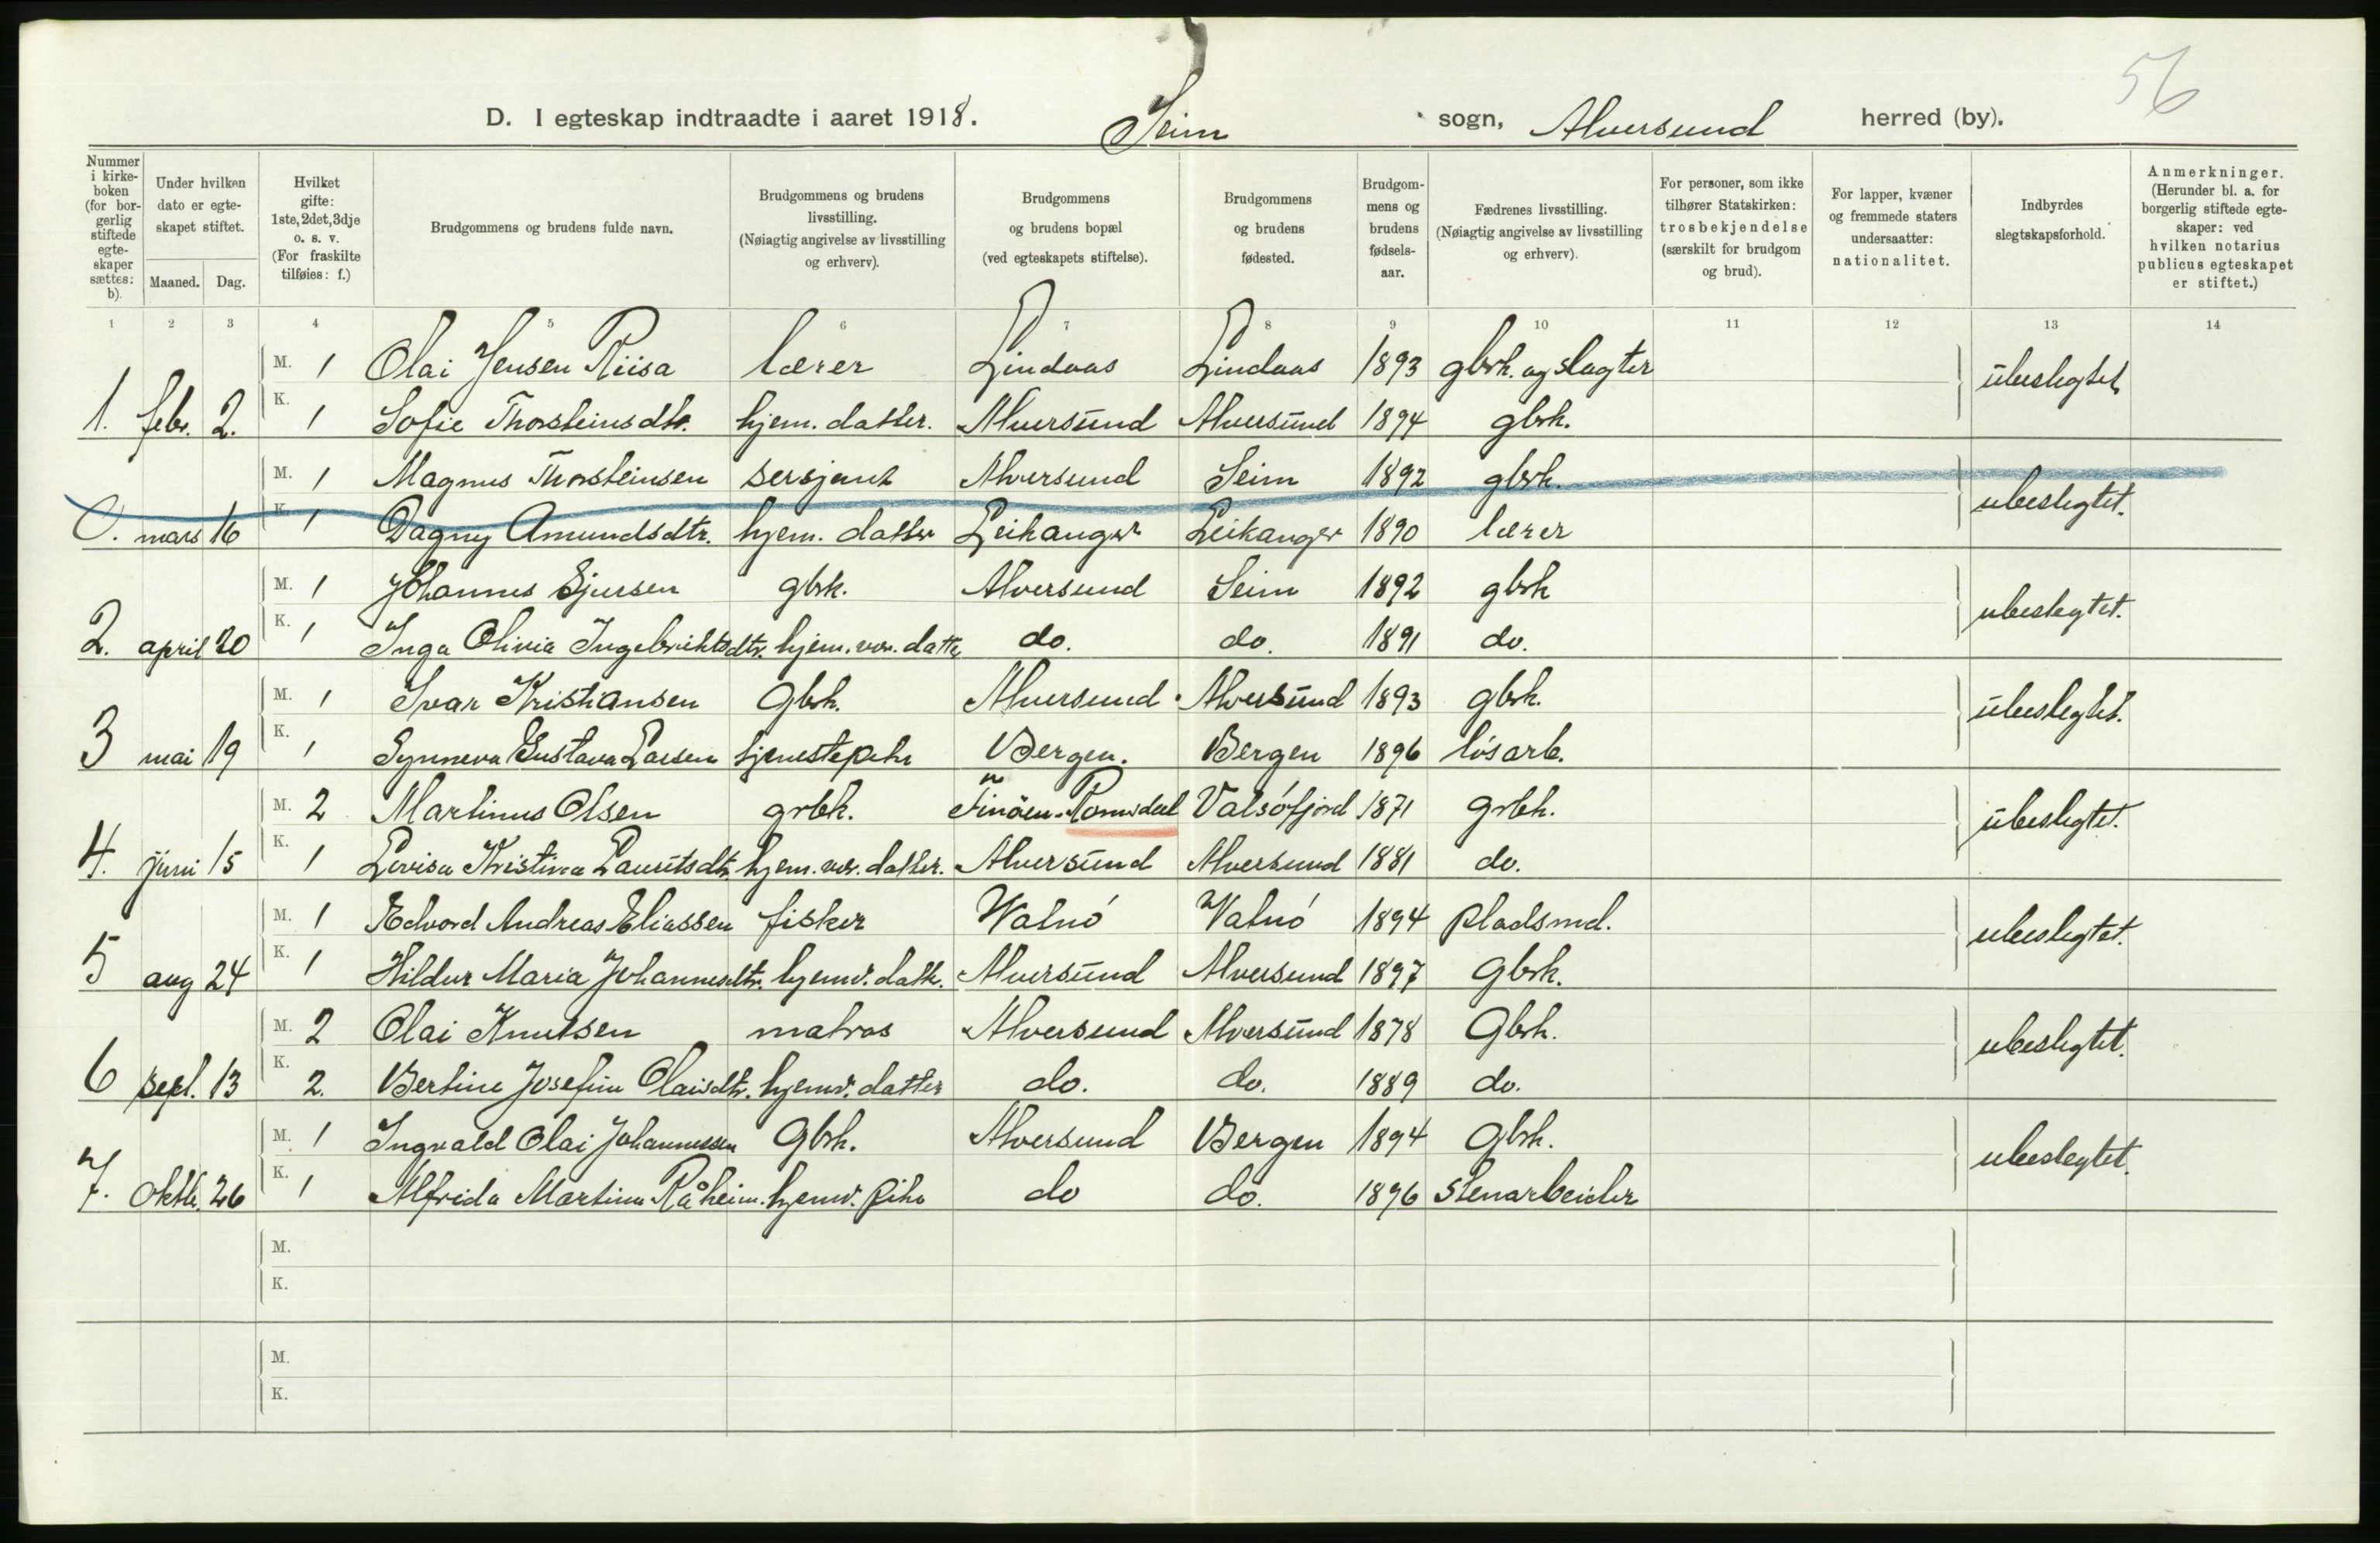 56
D. I egteskap indtraadte i aaret 1918. Seim sogn, Alversund herred (by).
Nummer i kirke-boken (for bor-gerlig stiftede egte-skaper sættes: b).
Under hvilken dato er egte-skapet stiftet.
Maaned. Dag.
Hvilket gifte: 1ste, 2det, 3dje o. s. v. (For fraskilte tilføies: f.)
Brudgommens og brudens fulde navn.
Brudgommens og brudens livsstilling. (Nøiagtig angivelse av livsstilling og erhverv).
Brudgommens og brudens bopæl (ved egteskapets stiftelse).
Brudgommens og brudens fødested.
Brudgom-mens og brudens fødsels-aar.
Fædrenes livsstilling. (Nøiagtig angivelse av livsstilling og erhverv).
For personer, som ikke tilhører Statskirken: trosbekjendelse (særskilt for brudgom og brud).
For lapper, kvæner og fremmede staters undersaatter: nationalitet.
Indbyrdes slegtskapsforhold.
Anmerkninger. (Herunder bl. a. for borgerlig stiftede egte-skaper: ved hvilken notarius publicus egteskapet er stiftet.)
1 2 3 4 5 6 7 8 9 10 11 12 13 14
M. 1 Olai Jensen Riisa lærer Lindaas Lindaas 1893 gbrk. og slagter ubeslegtet
1. febr. 2. K. 1 Sofie Thorsteinsdtr. hjem. datter. Alversund Alversund 1894 gbrk.
M. 1 Magnus Thorsteinsen sersjant Alversund Seim 1892 gbrk. ubeslegtet.
0. mars 16 K. 1 Dagny Amundsdtr. hjem. datter Leikanger Leikanger 1890 lærer
M. 1 Johannes Sjursen gbrk. Alversund Seim 1892 gbrk ubeslegtet.
2. april 20 K. 1 Inga Olivia Ingebriktsdtr. hjem. vær. datter do. do. 1891 do.
M. 1 Ivar Kristiansen Gbrk. Alversund Alversund 1893 gbrk. ubeslegtet.
3 mai 19 K. 1 Synneva Gustava Larsen tjenestepike Bergen. Bergen 1896 løsarb.
M. 2 Martinus Olsen grbk. Finöen. Romsdal Valsöfjord 1871 grbk. ubeslegtet.
4. juni 15 K. 1 Lovisa Kristina Lauritsdtr. hjem. vær. datter. Alversund Alversund 1881 do.
M. 1 Edvard Andreas Eliassen fisker Vatnö Vatnö 1894 pladsmd. ubeslegtet.
5 aug 24 K. 1 Hildur Maria Johannesdtr. hjemv. datter. Alversund Alversund 1897 Gbrk.
M. 2 Olai Knutsen matros Alversund Alversund 1878 Gbrk. ubeslegtet.
6 sept. 13 K. 2. Bertine Josefine Olaisdtr. hjemv. datter do. do. 1889 do.
M. 1 Ingvald Olai Johannessen Gbrk. Alversund Bergen 1894 Gbrk. ubeslegtet.
7. oktbr. 26 K. 1 Alfrida Martina Råheim. hjemv. pike do do. 1896 stenarbeider
M.
K.
M.
K.